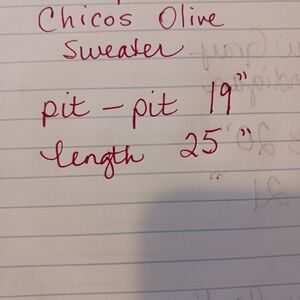 Chicos Olive
Sweater
pit - pit 19"
length 25"